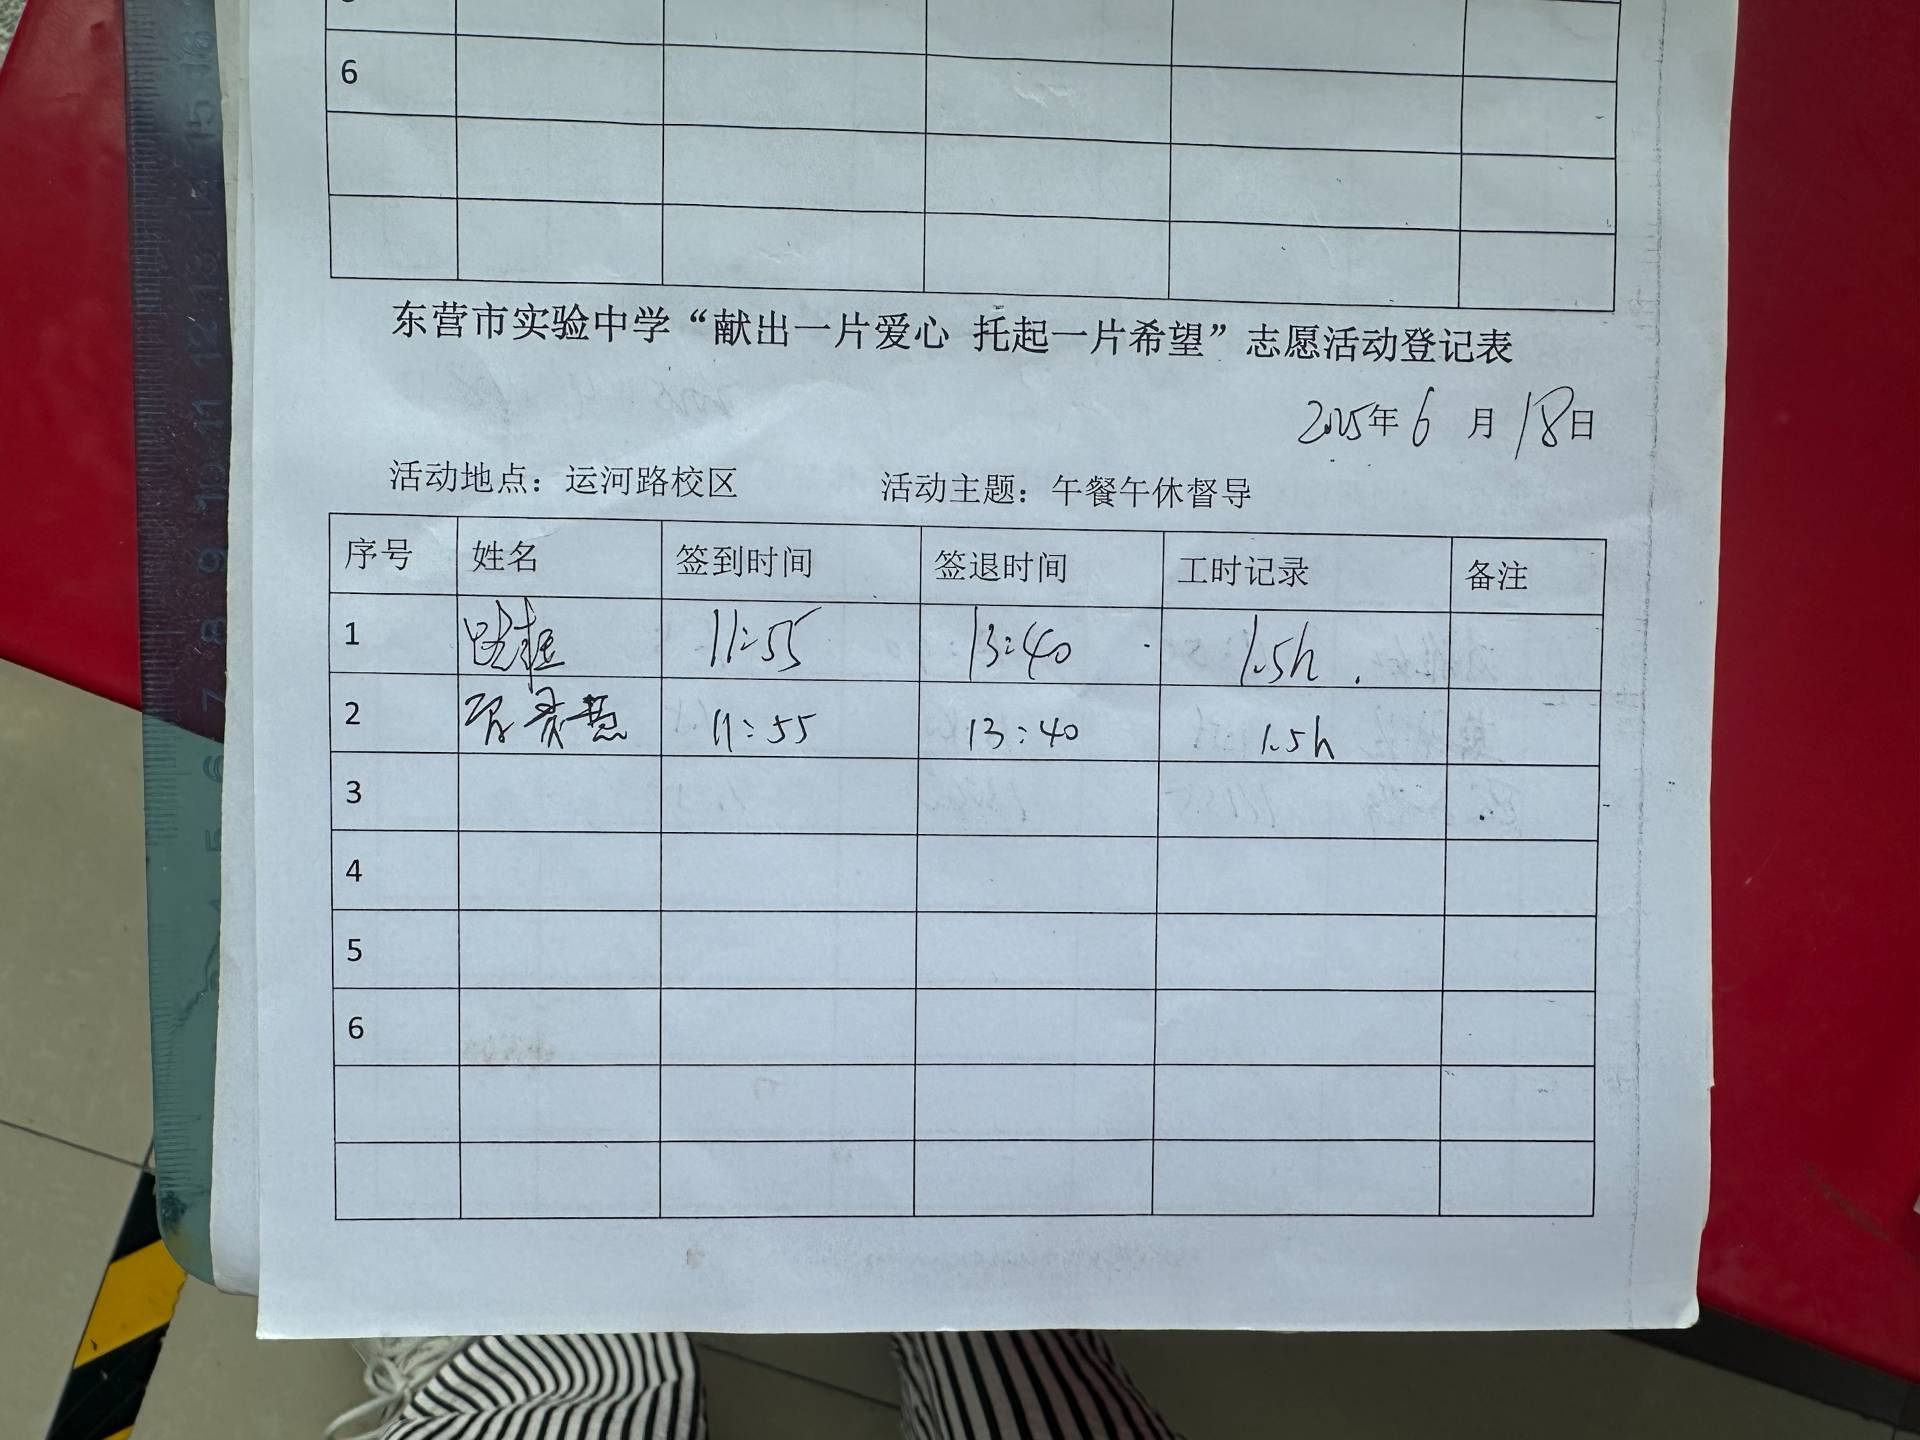 6
东营市实验中学“献出一片爱心 托起一片希望”志愿活动登记表
2025年6月18日
活动地点：运河路校区 活动主题：午餐午休督导
序号 姓名 签到时间 签退时间 工时记录 备注
1 11:55 13:40 1.5h
2 11:55 13:40 1.5h
3
4
5
6